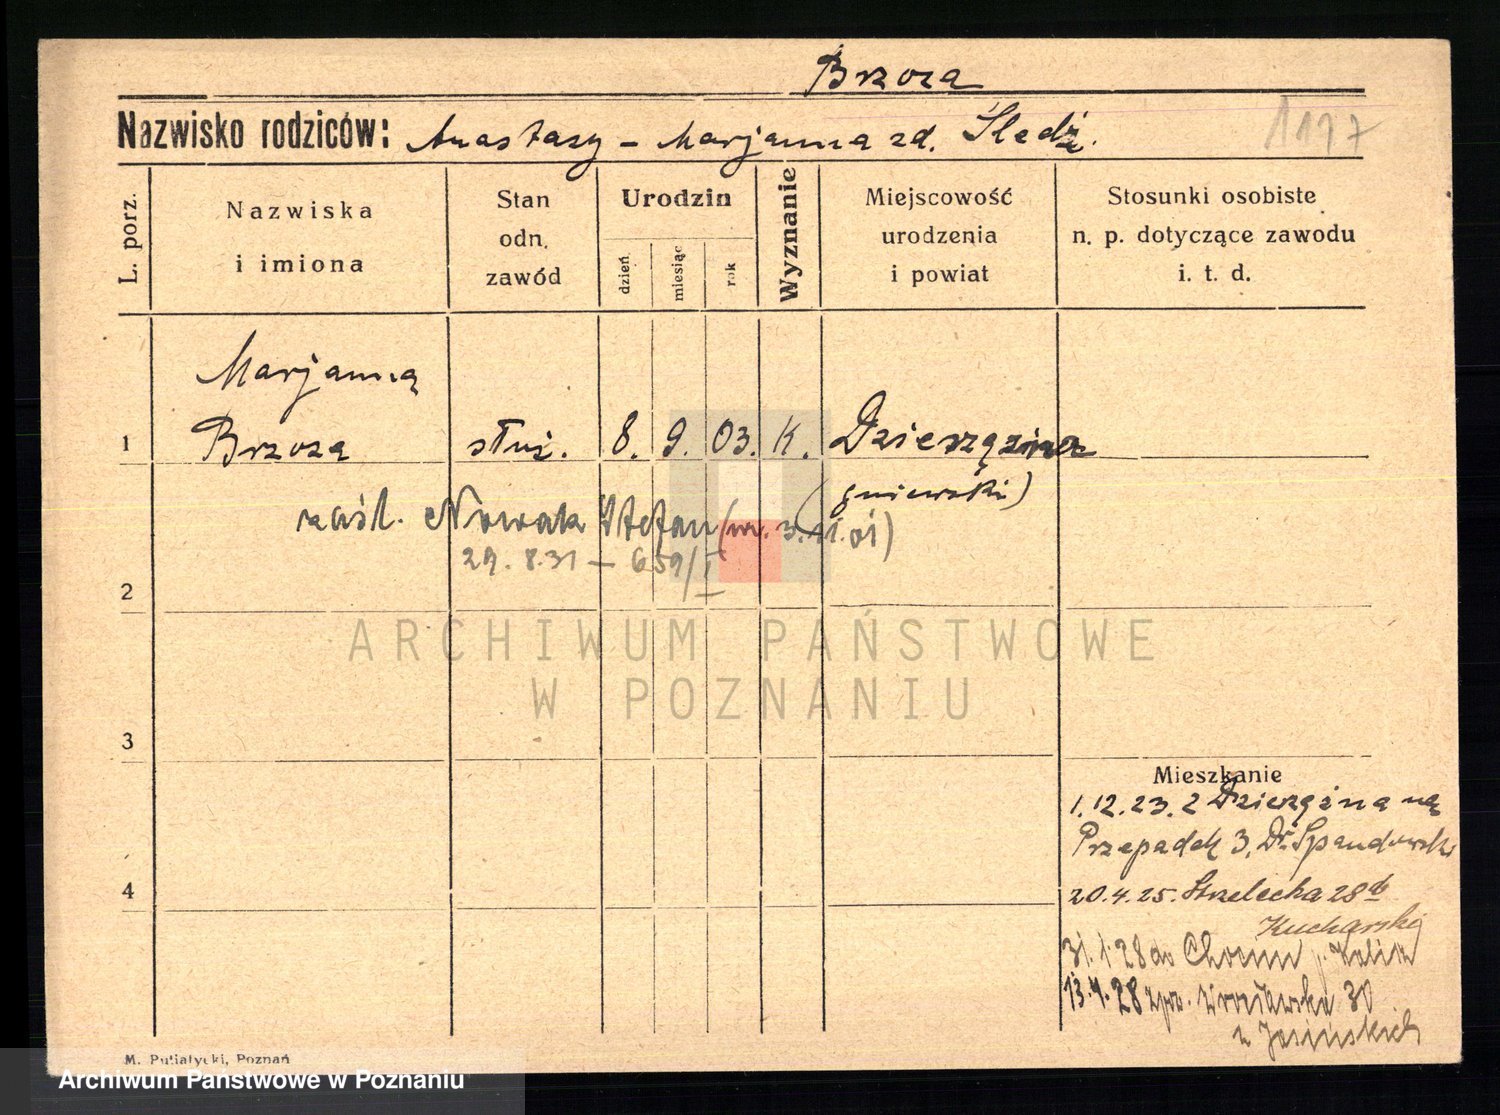 Brzoza
Nazwisko rodziców: Anastazy - Marjanna zd. Śledź.
1197
L. porz.
Nazwiska
i imiona
Stan
odn.
zawód
Urodzin
dzień
miesiąc
rok
Wyznanie
Miejscowość
urodzenia
i powiat
Stosunki osobiste
n. p. dotyczące zawodu
i. t. d.
Marjanna
1 Brzoza służ. 8. 9. 03. K. Dzierzążna
(gniewski)
zaśl. Nowak Stefan (ur. 3.11.01)
29.8.31 — 659/I
2
ARCHIWUM PAŃSTWOWE
W POZNANIU
3
Mieszkanie
1.12.23. z Dzierzążna na
Przepadek 3, Dr. Spandowski
4
20.4.25. Strzelecka 28
Kucharski
31.1.28 do Chocim p. Kalisz
13.4.28 Wrocławska 30
u Jasińskich
M. Putiatycki, Poznań
Archiwum Państwowe w Poznaniu